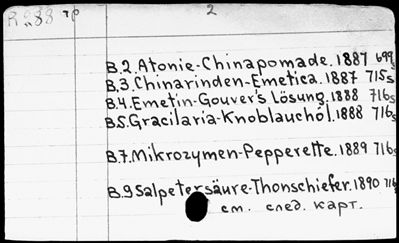 R 288 тр 2
B.2. Atonie-Chinapomade. 1887 699s
B.3. Chinarinden-Emetica. 1887 715s
B.4. Emetin-Gouver's Lösung. 1888 716s
B.5. Gracilaria-Knoblauchöl. 1888 716s
B.7. Mikrozymen-Pepperette. 1889 716s
B.9 Salpetersäure-Thonschiefer. 1890 716
см. след. карт.